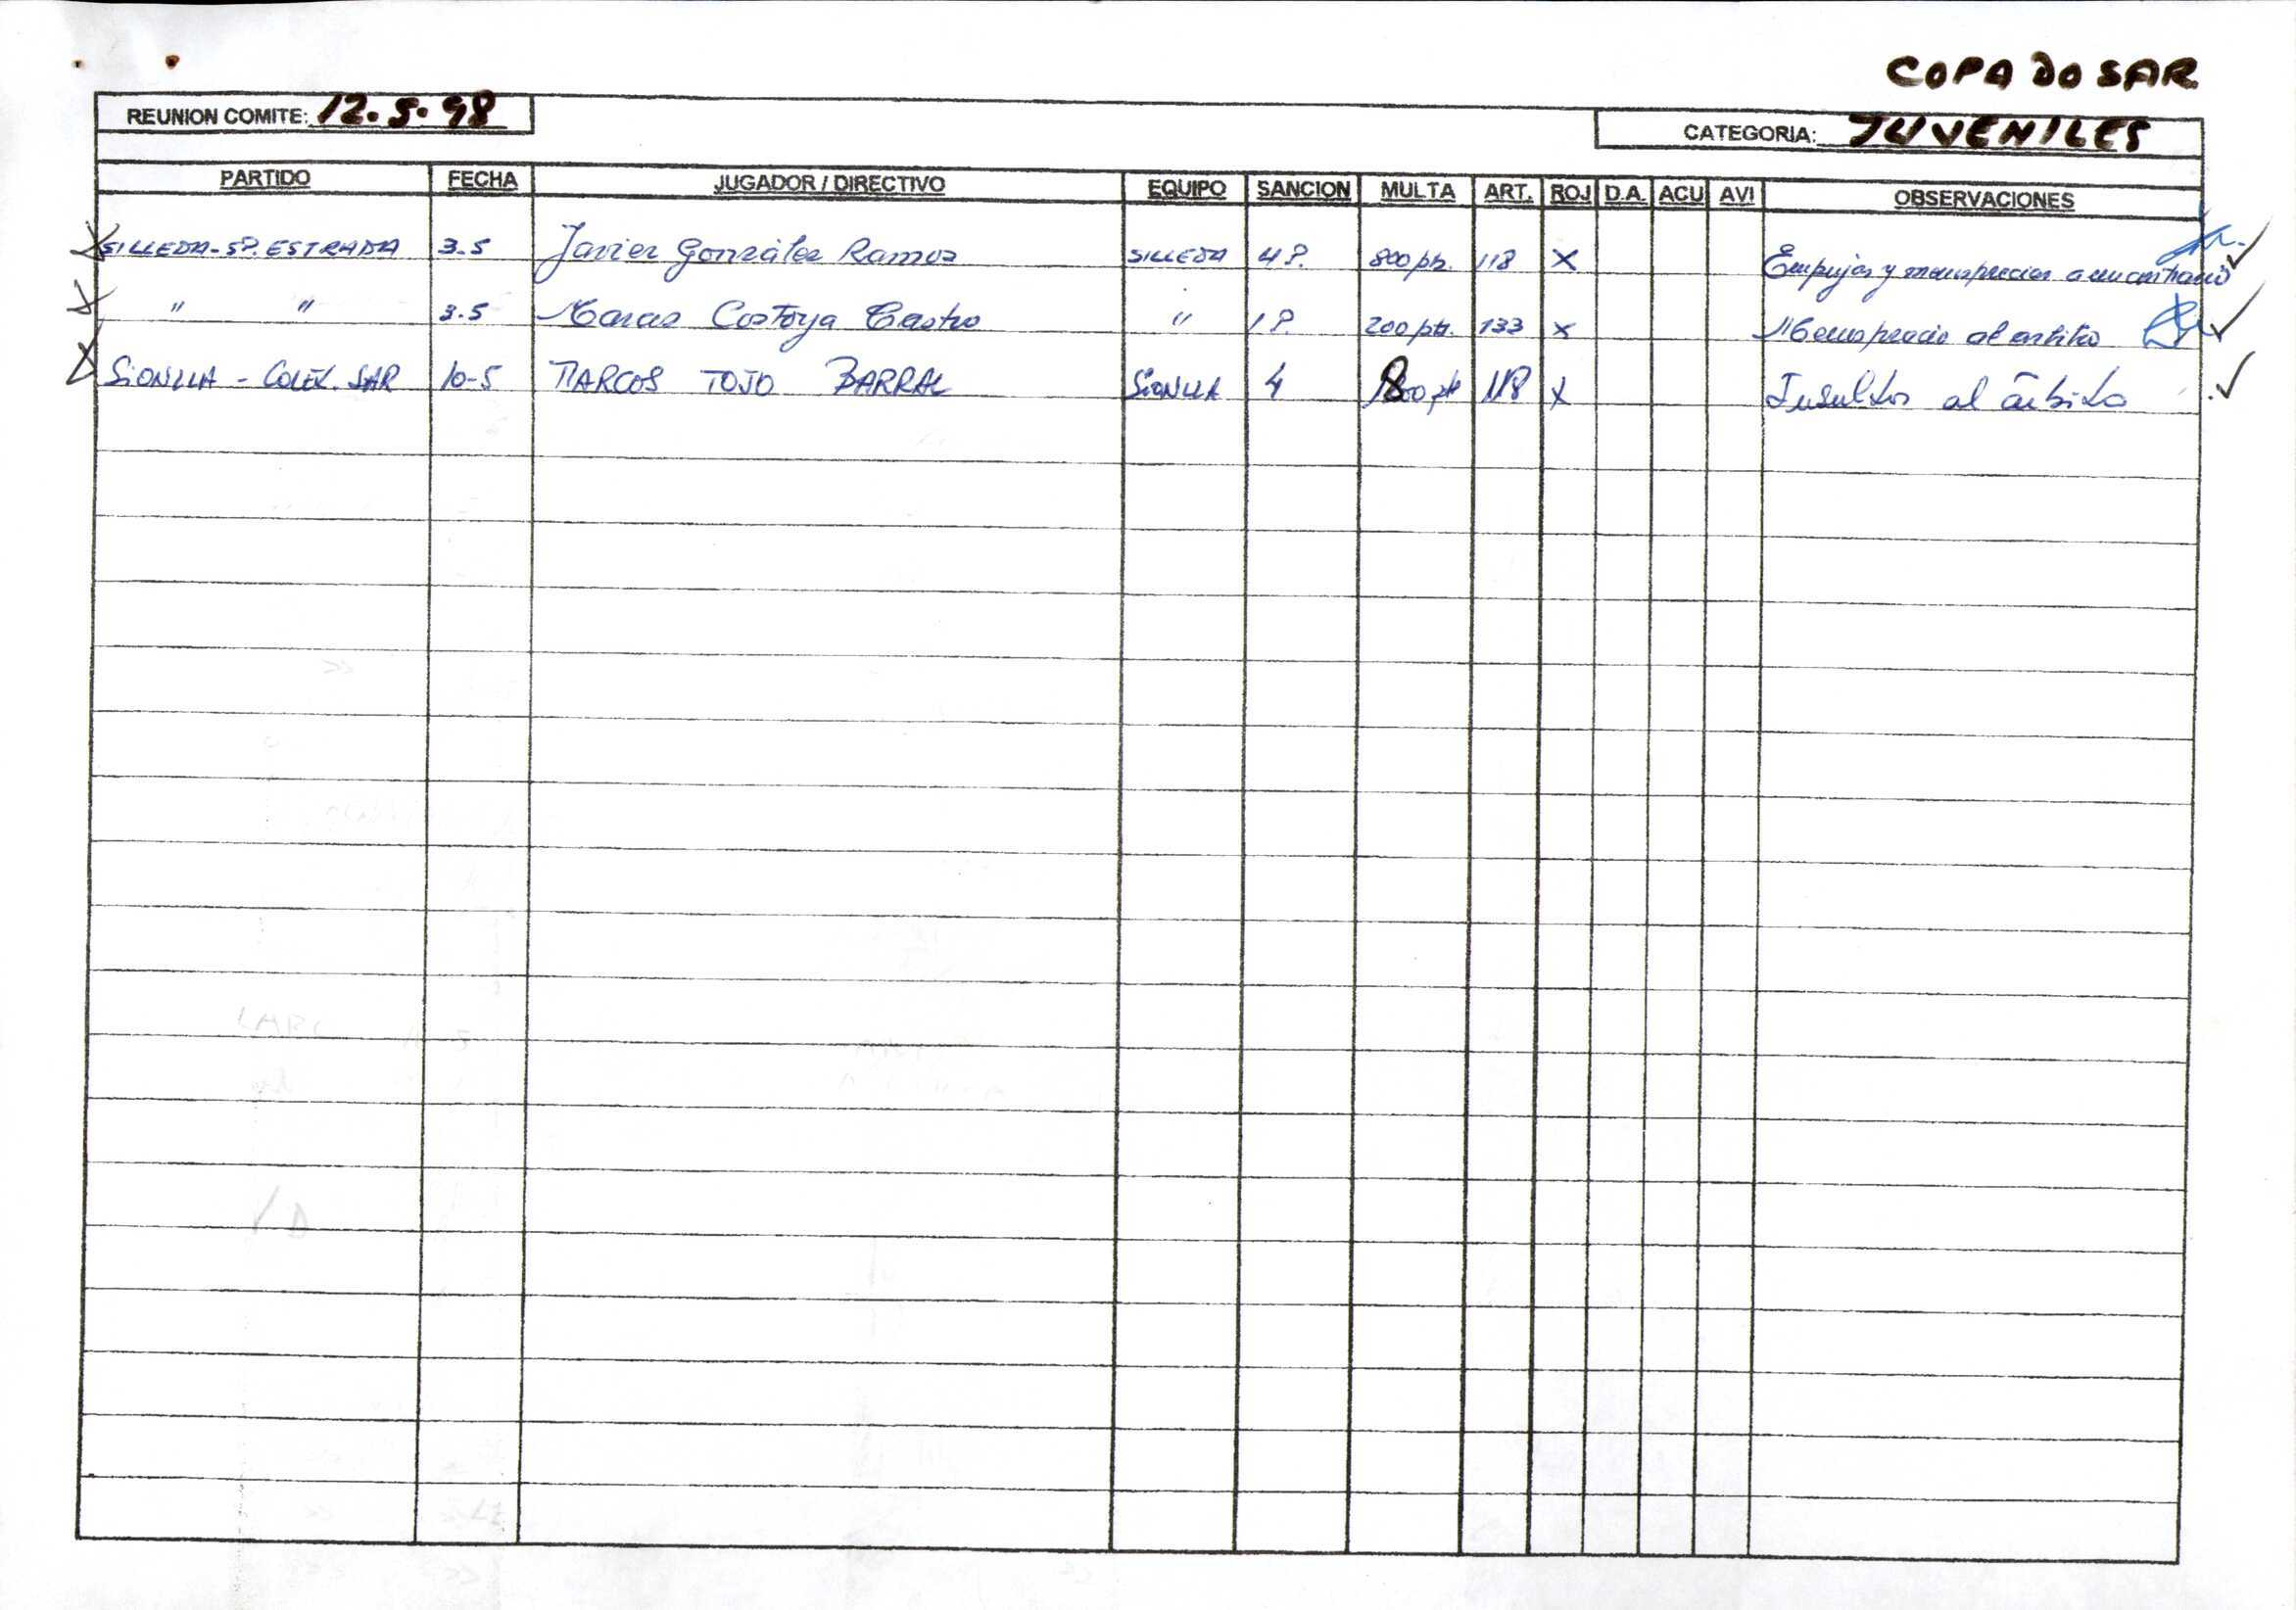 COPA DO SAR
REUNION COMITE: 12.5.98
CATEGORIA: JUVENILES
PARTIDO FECHA JUGADOR / DIRECTIVO EQUIPO SANCION MULTA ART. ROJ D.A. ACU AVI OBSERVACIONES
SILLEDA-SP. ESTRADA 3.5 Javier González Ramos SILLEDA 4 P. 800 pts. 118 X Empujar y menospreciar a un contrario
" " 3.5 Costoya Castro " 1 P. 200 pts. 133 X Menosprecio al arbitro
SIONLLA - COLEX. SAR 10-5 MARCOS TOJO BARRAL SIONLLA 4 800 pts 118 X Insultos al árbitro